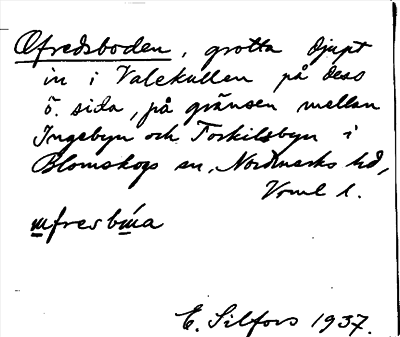 Ofredsboden, grotta djupt
in i Valekullen på dess
ö. sida, på gränsen mellan
Ingebyn och Torkilsbyn i
Blomskogs sn, Nordmarks hd,
Vrml l.
E. Silfors 1937.